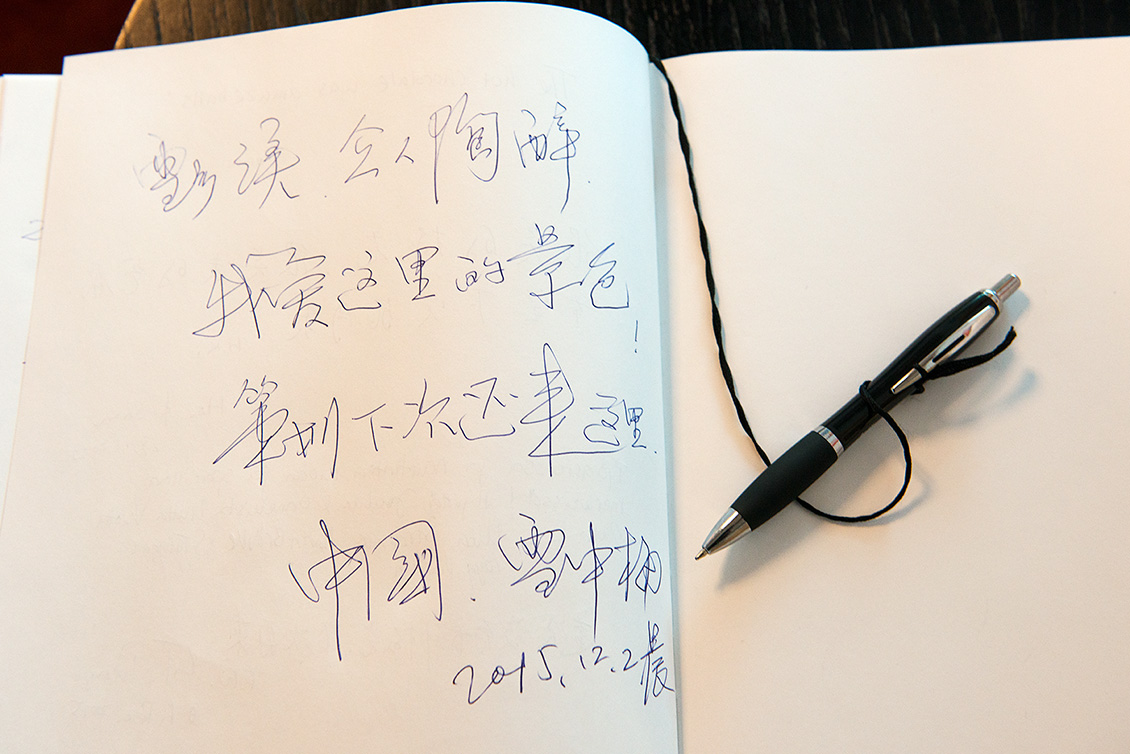 雪乡美.令人陶醉.
我爱这里的景色!
筹划下次还来这里.
中国.雪中梅
2015.12.2晨